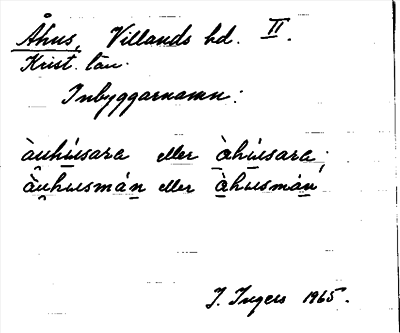 Åhus, Villands hd. II.
Krist. län.
Inbyggarnamn:
àuhúsara eller àhúsara;
àuhusmán eller àhusmán
I. Ingers 1965.